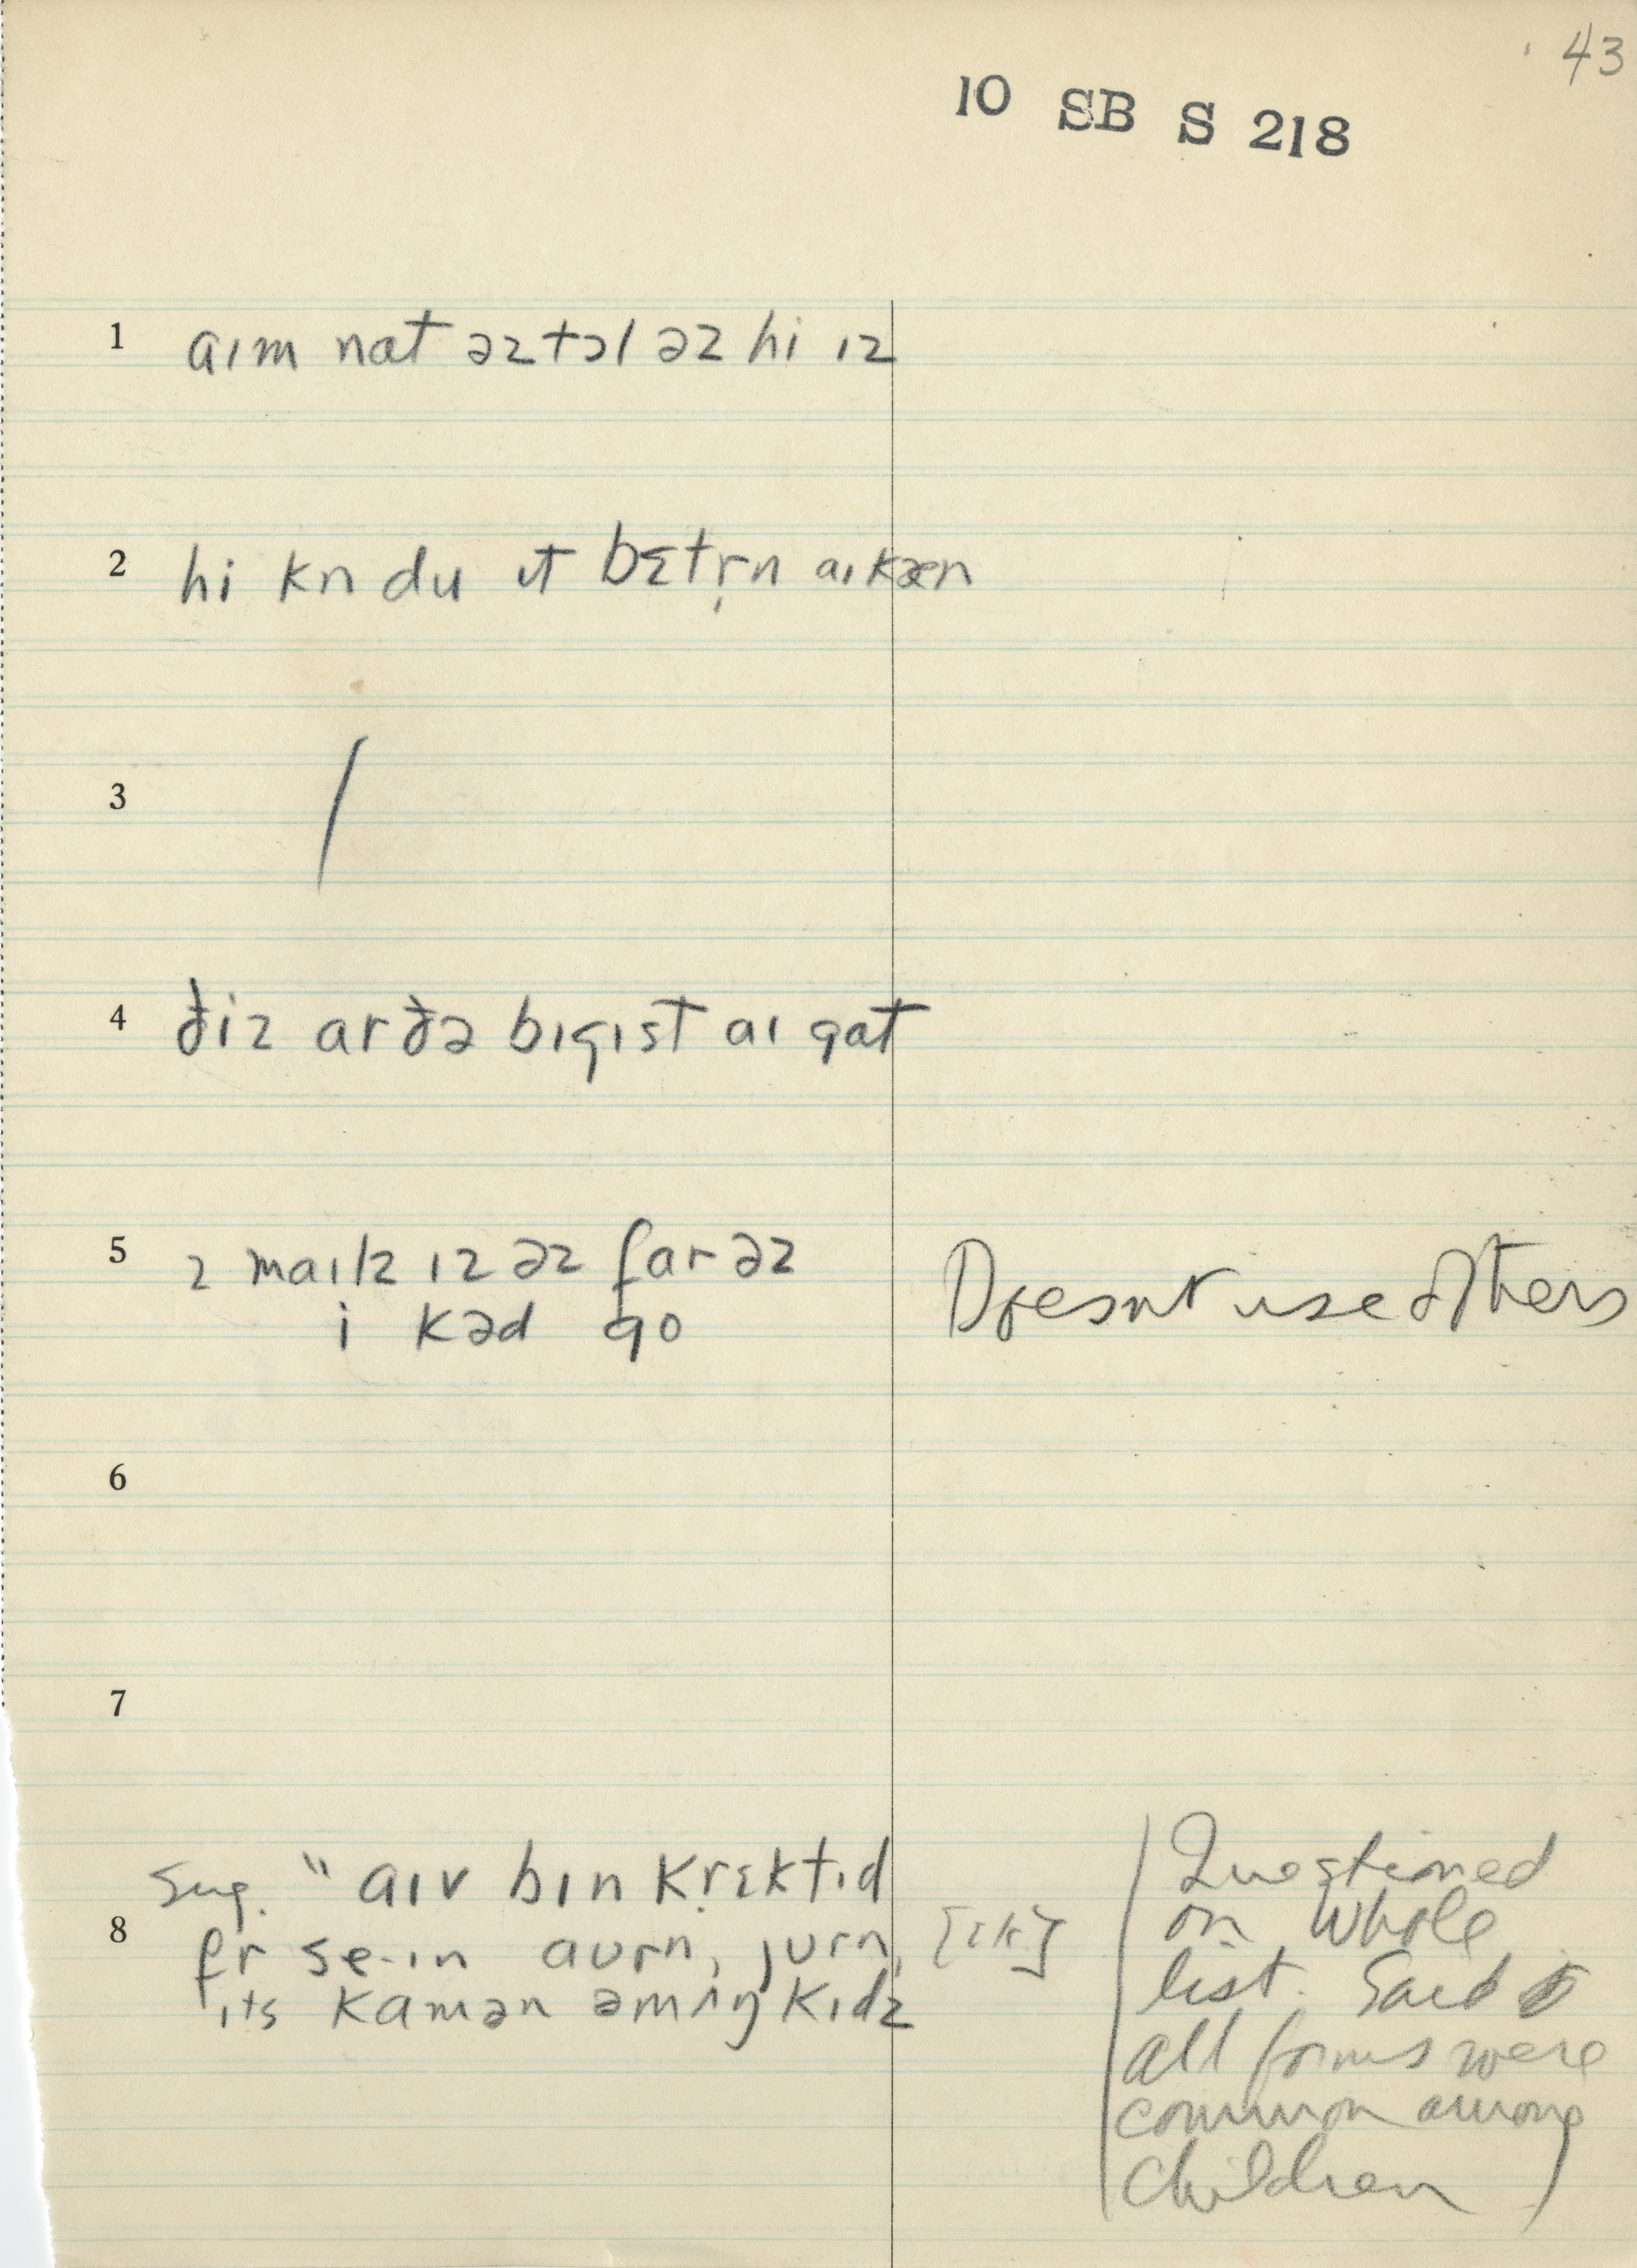 43
10 SB S 218
1 aɪm nat əz tɔl əz hi ɪz
2 hi kn du ɪt bɛtr̩n aɪ kæn
3 /
4 ðiz ar ðə bɪgɪst aɪ gat
5 2 maɪlz ɪz əz far əz
i kəd go
Doesn't use others
6
7
Sug. " aɪv bɪn krɛktɪd
8 fr se·ɪn aʊrn, jʊrn,
ɪts kamən əmʌŋ kɪdz
(Questioned
on whole
list. Said
all forms were
common among
children)